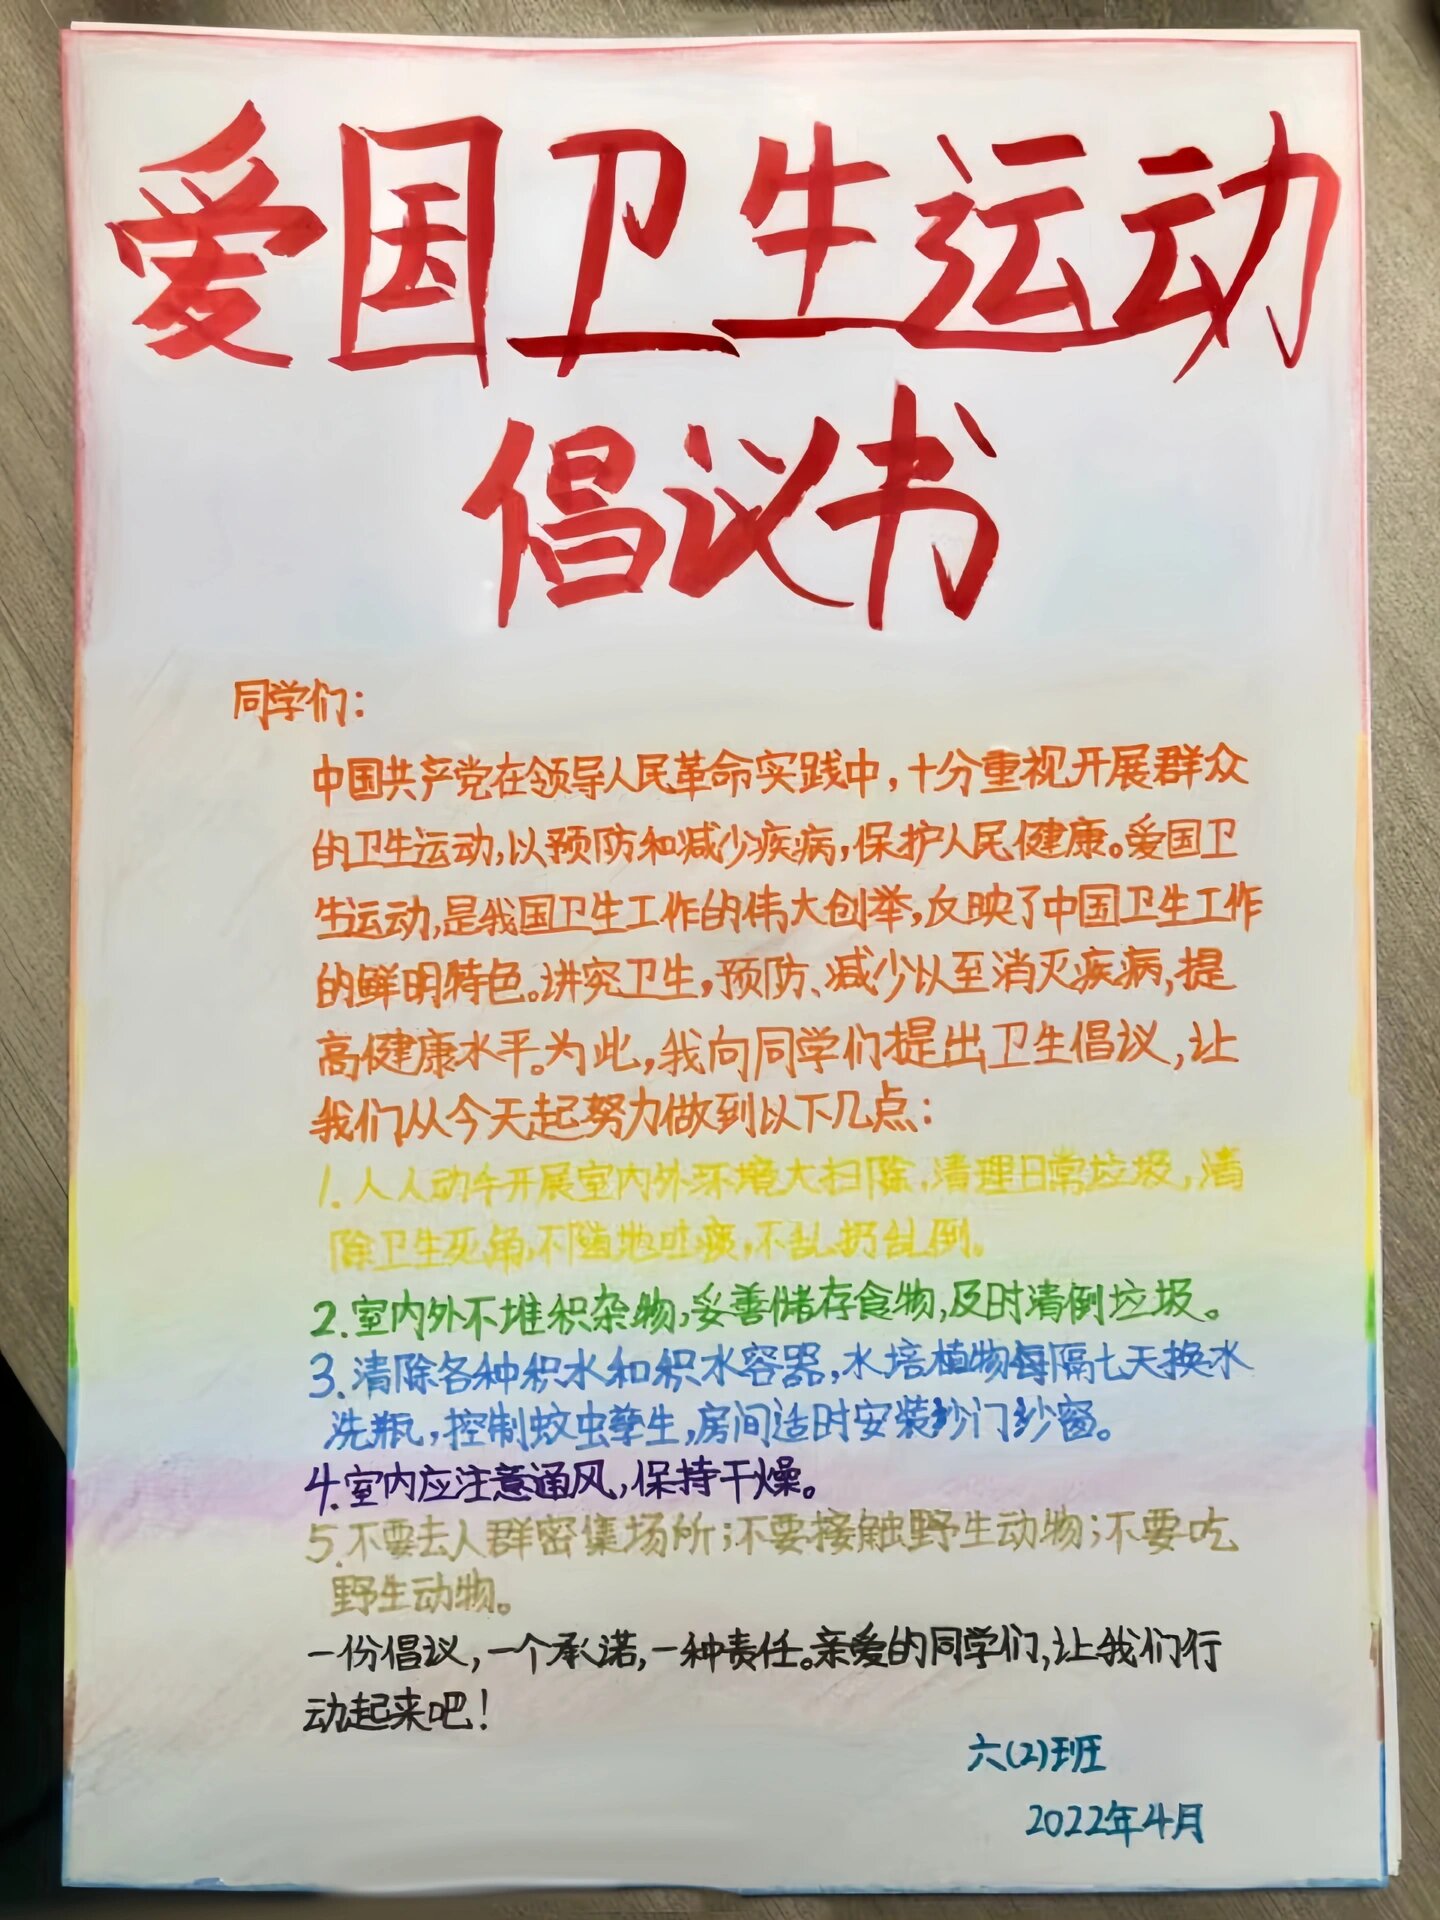 爱国卫生运动
倡议书
同学们：
中国共产党在领导人民革命实践中，十分重视开展群众
的卫生运动，以预防和减少疾病，保护人民健康。爱国卫
生运动，是我国卫生工作的伟大创举，反映了中国卫生工作
的鲜明特色。讲究卫生，预防、减少以至消灭疾病，提
高健康水平。为此，我向同学们提出卫生倡议，让
我们从今天起努力做到以下几点：
1.人人动手开展室内外环境大扫除，清理日常垃圾，清
除卫生死角，不随地吐痰，不乱扔乱倒。
2.室内外不堆积杂物，妥善储存食物，及时清倒垃圾。
3.清除各种积水和积水容器，水培植物每隔七天换水
洗瓶，控制蚊虫孳生，房间适时安装纱门纱窗。
4.室内应注意通风，保持干燥。
5.不要去人群密集场所；不要接触野生动物；不要吃
野生动物。
一份倡议，一个承诺，一种责任。亲爱的同学们，让我们行
动起来吧！
六(2)班
2022年4月